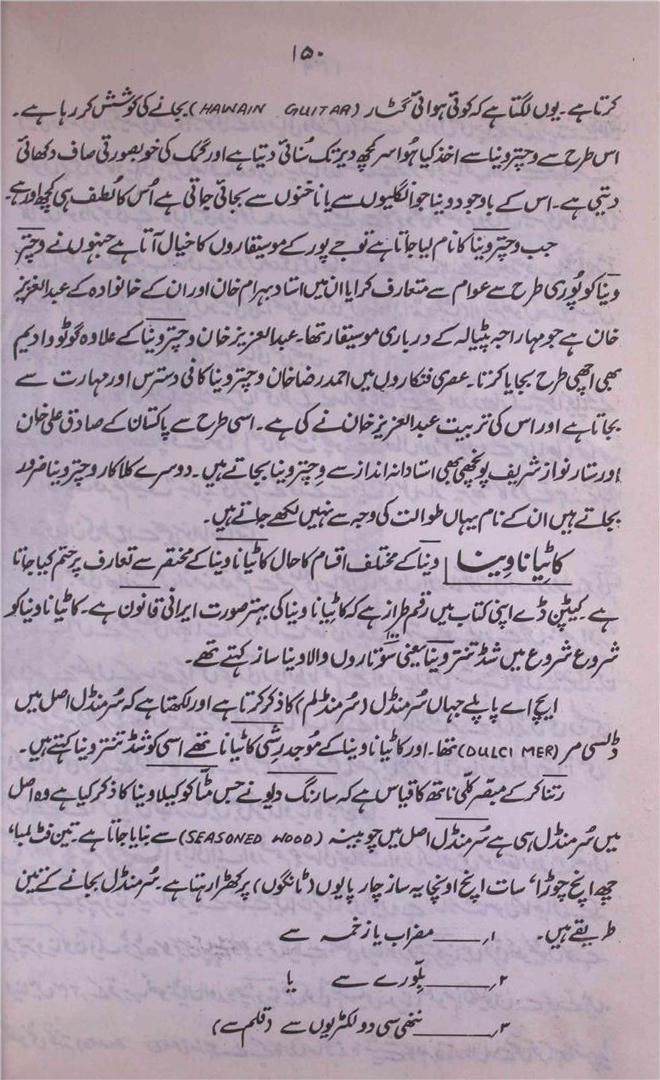 ۱۵۰
کرتا ہے۔ یوں لگتا ہے کہ کوئی ہوائی گٹار (HAWAIN GUITAR) بجانے کی کوشش کر رہا ہے۔
اس طرح سے وچتر وینا سے اخذ کیا ہُوا سر کچھ دیر تک سُنائی دیتا ہے اور گمک کی خوبصورتی صاف دکھائی
دیتی ہے۔ اس کے باوجود وینا جو انگلیوں سے یا ناخنوں سے بجائی جاتی ہے اُس کا لُطف ہی کچھ اور ہے
جب وچتر وینا کا نام لیا جاتا ہے تو جے پور کے موسیقاروں کا خیال آتا ہے جنہوں نے وچتر
وینا کو پُوری طرح سے عوام سے متعارف کرایا ان میں استاد بہرام خان اور ان کے خانوادہ کے عبدالعزیز
خان ہے جو مہاراجہ پٹیالہ کے درباری موسیقار تھا۔ عبدالعزیز خان وچتر وینا کے علاوہ گوٹو وادیم
بھی اچھی طرح بجایا کرتا۔ عصری فنکاروں میں احمد رضا خان وچتر وینا کافی دسترس اور مہارت سے
بجاتا ہے اور اس کی تربیت عبدالعزیز خان نے کی ہے۔ اسی طرح سے پاکستان کے صادق علی خان
اور ستار نواز شریف پونچھی بھی استادانہ انداز سے وچتر وینا بجاتے ہیں۔ دوسرے کلاکار وچتر وینا ضرور
بجاتے ہیں ان کے نام یہاں طوالت کی وجہ سے نہیں لکھے جاتے ہیں۔
کاتیانا وینا وینا کے مختلف اقسام کا حال کاتیانا وینا کے مختصر سے تعارف پر ختم کیا جاتا
ہے۔ کیپٹن ڈے اپنی کتاب میں رقم طراز ہے کہ کاتیانا وینا کی بہتر صورت ایرانی قانون ہے۔ کاتیانا وینا کو
شروع شروع میں شٹ تنتر وینا یعنی سَو تاروں والا وینا ساز کہتے تھے۔
ایچ اے پاپلے جہاں سُر منڈل (سُر منڈلم) کا ذکر کرتا ہے اور لکھتا ہے کہ سُر منڈل اصل میں
ڈلسی مر (DULCI MER) تھا۔ اور کاتیانا وینا کے مُوجد رِشی کاتیانا تھے اسی کو شٹ تنتر وینا کہتے ہیں۔
رتناکر کے مبصّر کلّی ناتھ کا قیاس ہے کہ سارنگ دیو نے جس متّا کوکیلا وینا کا ذکر کیا ہے وہ اصل
میں سُر منڈل ہی ہے سُر منڈل اصل میں چوبینہ (SEASONED WOOD) سے بنایا جاتا ہے۔ تین فٹ لمبا،
چھ انچ چوڑا، سات انچ اونچا یہ ساز چار پایوں (ٹانگوں) پر کھڑا رہتا ہے۔ سُر منڈل بجانے کے تین
طریقے ہیں۔ ۱۔ ــــــ مضراب یا زخمہ سے
۲۔ ــــــ بلّورے سے یا
۳۔ ــــــ ننھی سی دو لکڑیوں سے (قلم سے)